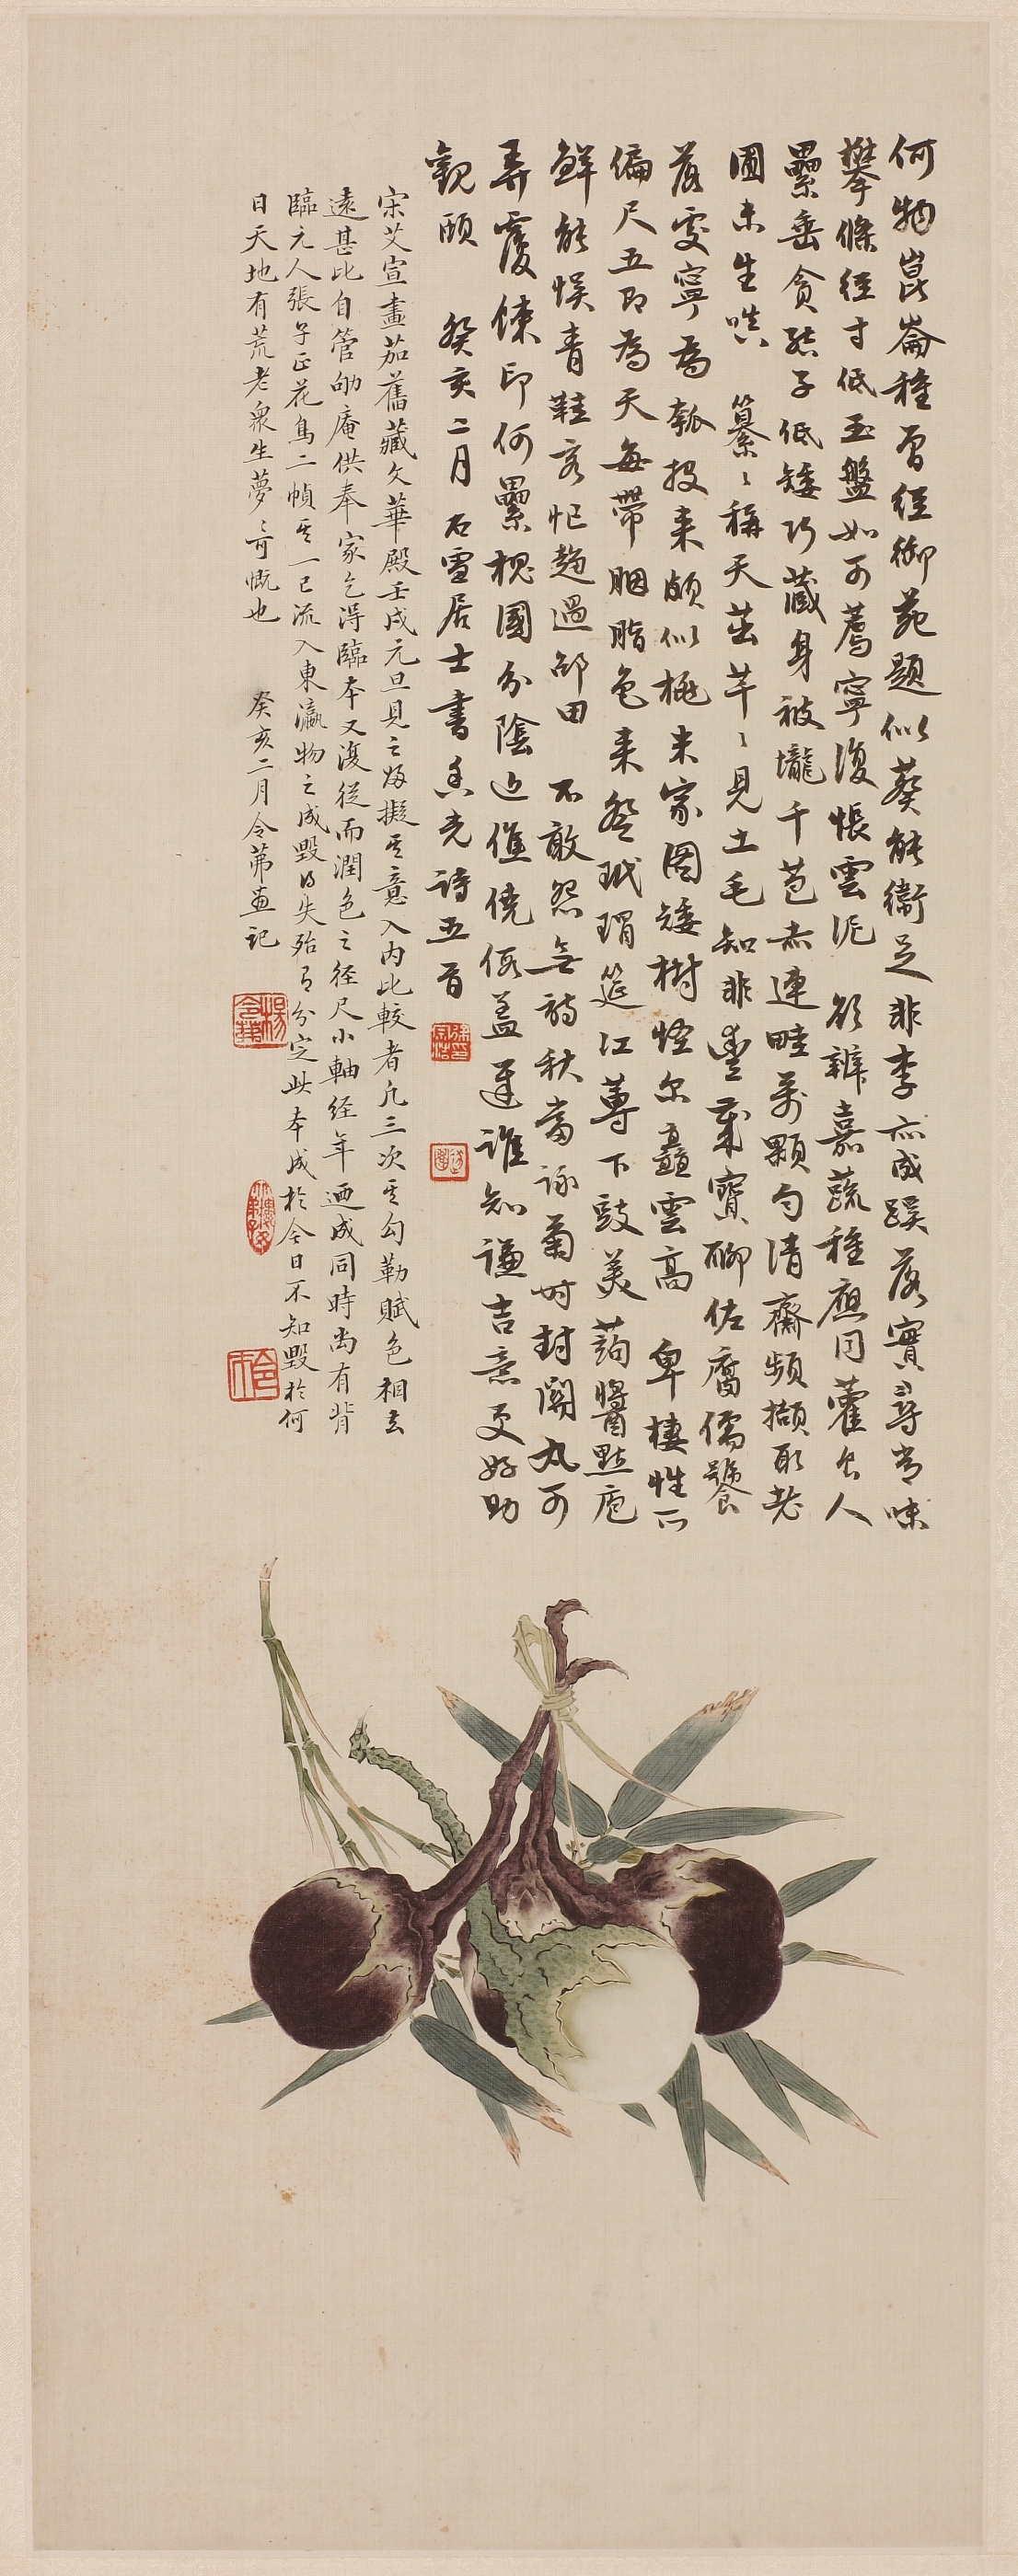 何物崑崙種曾經御苑題似葵能衛足非李亦成蹊落實尋常味
攀條徑寸低玉盤如可薦寧復悵雲泥 欲辨嘉蔬種應同藿食人
纍垂貪結子低矮巧藏身被壠千苞赤連畦萬顆勻清齋頻擷取老
圃未生嗔 纂〻稱天茁芊〻見土毛知非豊歲寶聊佐腐儒饕
落處寧為瓠投来頗似桃朱家園矮樹怪尔矗雲高 卑棲性所
偏尺五即為天每帶胭脂色来登玳瑁筵江蓴下豉美蒟醬點庖
鮮能悮青鞋客忙趨過邵田 不敢怨無詩秋當詠菊時封關丸可
弄覆餗印何纍槐國分陰近僬僥偃蓋遲誰知謙吉意更好助
觀頤 癸亥二月 石雪居士書香光詩五首
宋艾宣畫茄舊藏文華殿壬戌元旦見之歸擬其意入内比較者凡三次其勾勒賦色相去
遠甚比自管劬庵供奉家乞得臨本又復從而潤色之徑尺小軸經年迺成同時尚有背
臨元人張子正花鳥二幀其一已流入東瀛物之成毀得失殆有分定此本成於今日不知毀於何
日天地有荒老衆生夢〻可慨也 癸亥二月令茀畫記
楊令茀